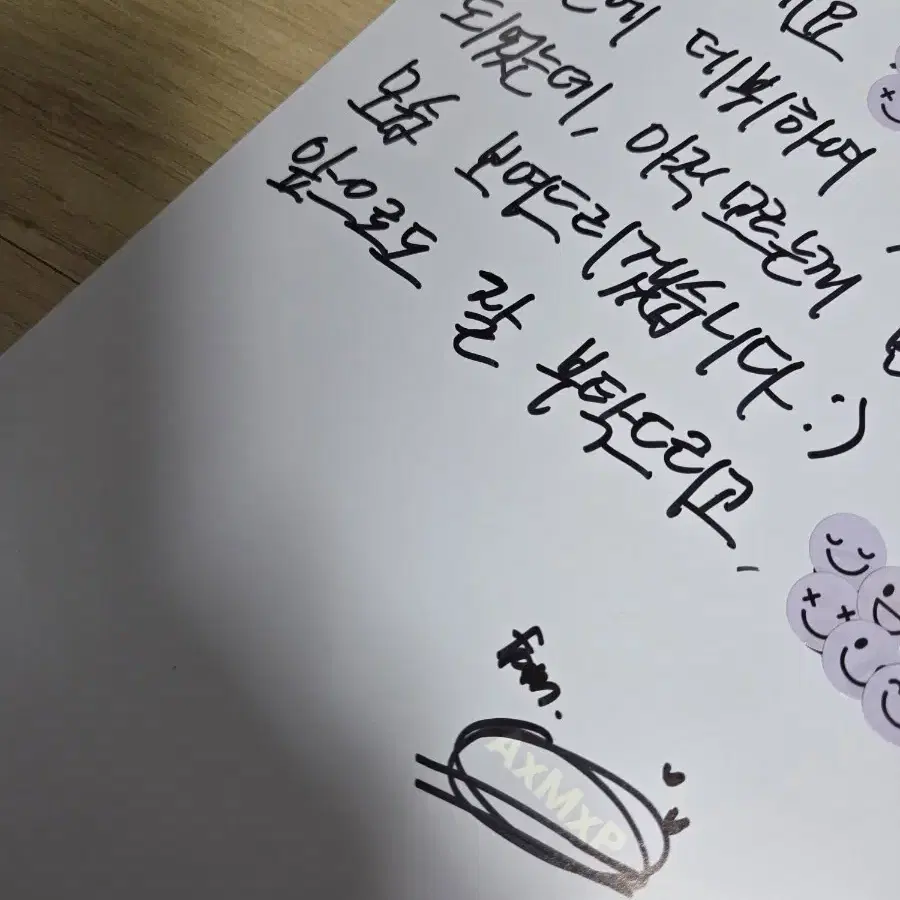 요
에 데뷔하여
되었는데, 아직 모르는게
모습 보여드리겠습니다 :)
앞으로도 잘 부탁드리고,
from.
AxMxP